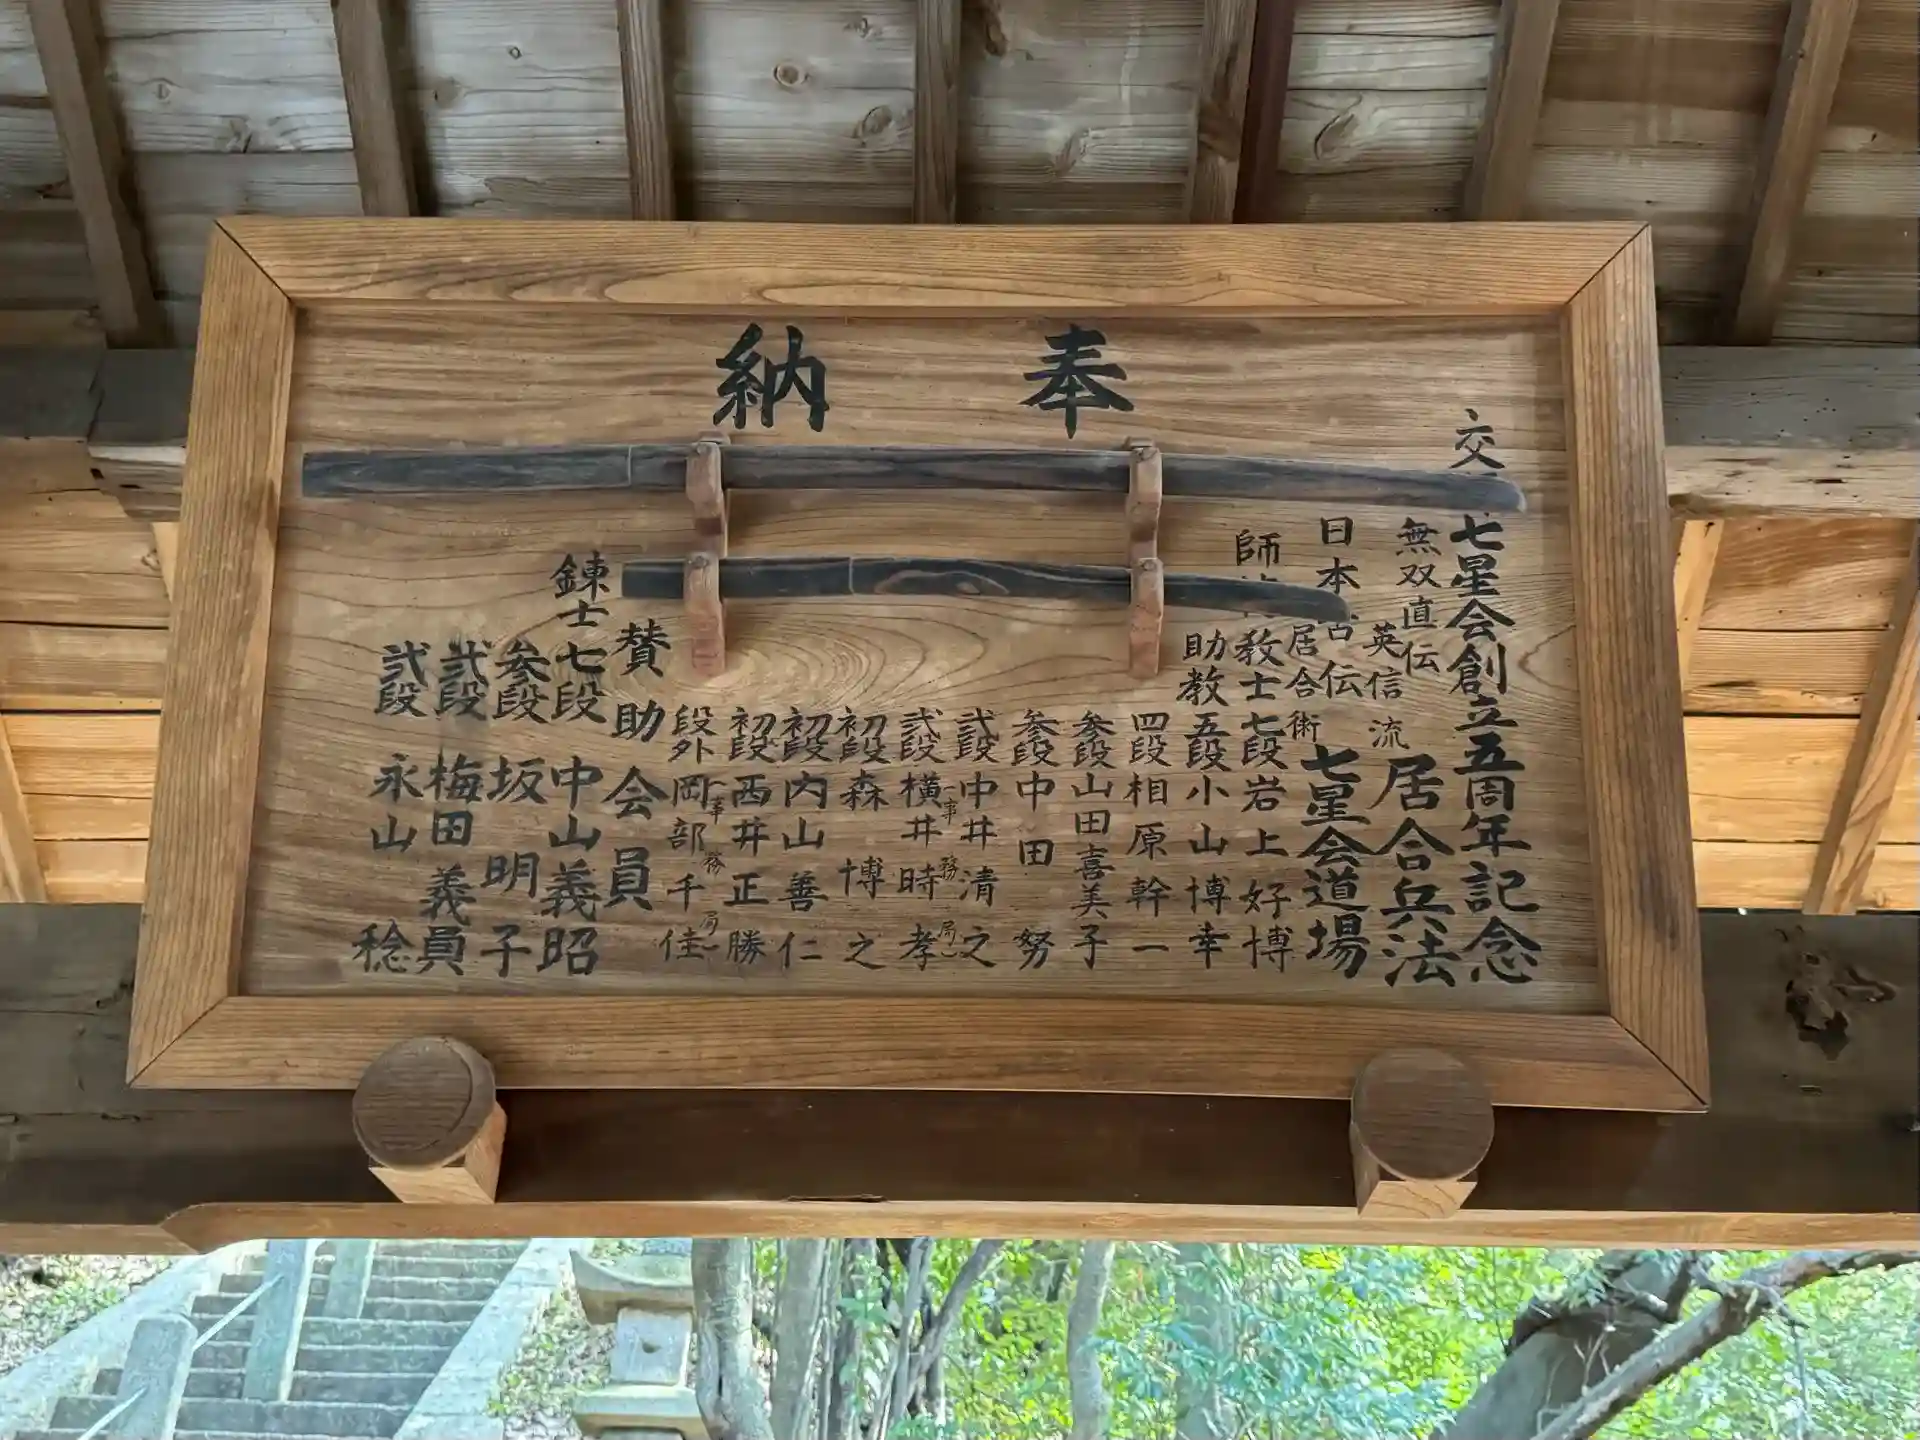 奉納
交
七星会創立五周年記念
無双直伝英信流居合兵法
日本古伝居合術七星会道場
師 教士七段岩上好博
助教五段小山博幸
四段相原幹一
参段山田喜美子
参段中田努
弐段中井清之
弐段横井時孝
事務局
初段森博之
初段内山善仁
初段西井正勝
段外岡部千佳
事務局
賛助会員
錬士七段中山義昭
参段坂明子
弐段梅田義員
弐段永山稔